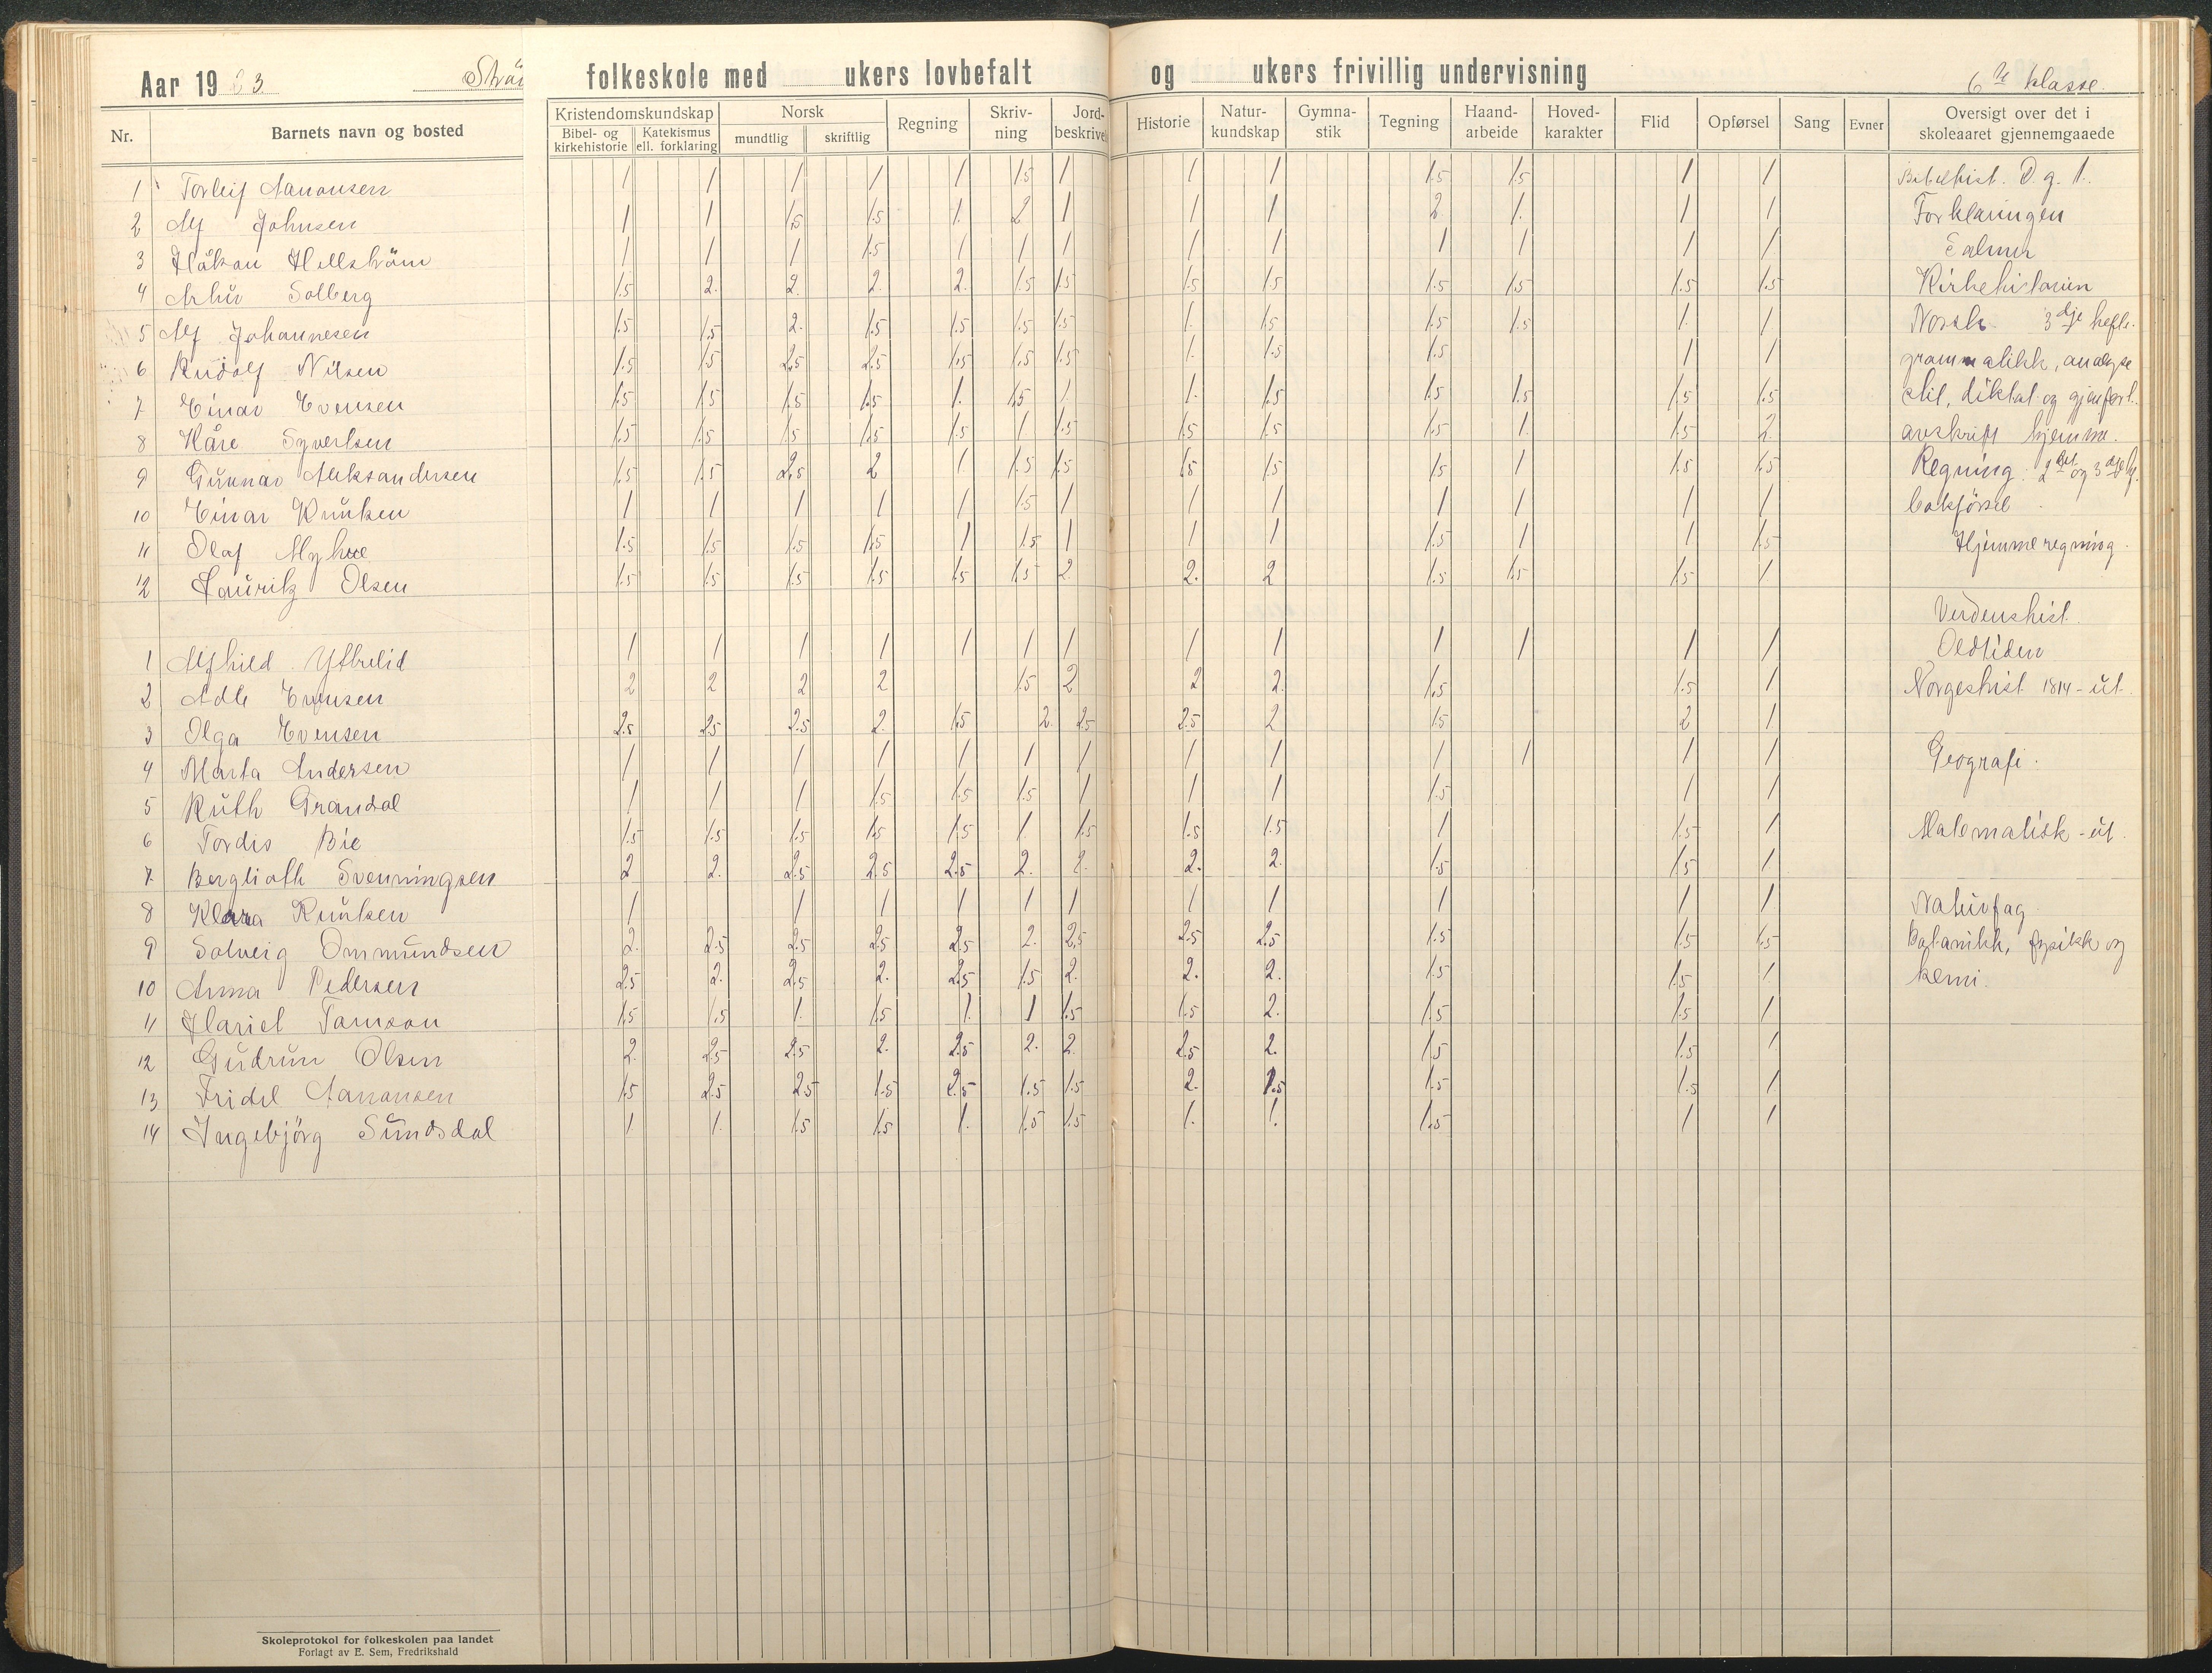 Aar 19 23 Strö folkeskole med ukers lovbefalt og ukers frivillig undervisning 6te klasse.
Nr. Barnets navn og bosted Kristendomskundskap Bibel- og kirkehistorie Katekismus ell. forklaring Norsk mundtlig skriftlig Regning Skriv-ning Jord-beskrivel Historie Natur-kundskap Gymna-stik Tegning Haand-arbeide Hoved-karakter Flid Opførsel Sang Evner Oversigt over det i skoleaaret gjennemgaaede
1 Torleif Aanonsen 1 1 1 1 1 1.5 1 1 1 1.5 1.5 1 1 Bibelhist. D. g. 1.
2 Alf Johnsen 1 1 1.5 1.5 1. 2 1 1 1 2. 1. 1 1 Forklaringen
3 Håkan Hellström 1 1 1 1.5 1 1 1 1 1 1 1 1 1 Salmer
4 Arthur Solberg 1.5 2. 2. 2. 2. 1.5 1.5 1.5 1.5 1.5 1.5 1.5 1.5 Kirkehistorien
5 Alf Johannesen 1.5 1.5 2. 1.5 1.5 1.5 1.5 1. 1.5 1.5 1.5 1. 1 Norsk 3dje hefte.
6 Rudolf Nilsen 1.5 1.5 2.5 2.5 1.5 1.5 1.5 1. 1.5 1.5 1 1 grammatikk, analyse
7 Einar Evensen 1.5 1.5 1.5 1.5 1. 1.5 1. 1. 1.5 1.5 1.5 1.5 1.5 stil, diktat og gjenfort.
8 Kåre Syvertsen 1.5 1.5 1.5 1.5 1.5 1 1.5 1.5 1.5 1.5 1. 1.5 2. avskrift hjemme.
9 Gunnar Aleksandersen 1.5 1.5 2.5 2 1. 1.5 1.5 1.5 1.5 1.5 1 1.5 1.5 Regning: 2det og 3dje h.
10 Einar Knutsen 1 1 1 1 1 1.5 1 1 1 1 1 1 1 bokførsel
11 Olaf Myhre 1.5 1.5 1.5 1.5 1 1.5 1 1 1 1.5 1 1 1.5 Hjemmeregning.
12 Lauritz Olsen 1.5 1.5 1.5 1.5 1.5 1.5 2. 2. 2 1.5 1.5 1.5 1
Verdenshist.
1 Alfhild Ytrelid 1 1 1 1 1 1 1 1 1 1 1 1 1 Oldtiden
2 Adle Evensen 2 2 2 2 1.5 2 2 2. 1.5 1.5 1 Norgeshist 1814 - ut.
3 Olga Evensen 2.5 2.5 2.5 2. 1.5 2. 2.5 2.5 2 1.5 2 1.
4 Marta Andersen 1 1 1 1 1 1 1 1 1 1 1 1 1 Geografi.
5 Ruth Grandal 1 1 1 1.5 1.5 1.5 1 1 1 1.5 1 1
6 Tordis Bie 1.5 1.5 1.5 1.5 1.5 1 1.5 1.5 1.5 1 1.5 1 Matematisk - ut.
7. Berglioth Svenningsen 2 2. 2.5 2.5 2.5 2. 2. 2. 2. 1.5 1.5 1
8 Klara Knutsen 1 1 1 1 1 1 1 1 1 1 1 Naturfag
9 Solveig Ommundsen 2. 2.5 2.5 2.5 2.5 2. 2.5 2.5 2.5 1.5 1.5 1.5 Botanikk, fysikk og
10 Anna Pedersen 2.5 2. 2.5 2. 2.5 1.5 2. 2. 2. 1.5 1.5 1 kemi.
11 Hariet Tamson 1.5 1.5 1. 1.5 1. 1 1.5 1.5 2. 1.5 1.5 1
12 Gudrun Olsen 2. 2.5 2.5 2. 2.5 2. 2. 2.5 2. 1.5 1.5 1
13 Fridel Aanonsen 1.5 2.5 2.5 1.5 2.5 1.5 1.5 2. 1.5 1.5 1.5 1
14 Ingebjörg Sundsdal 1 1. 1.5 1.5 1. 1.5 1.5 1. 1. 1.5 1 1
Skoleprotokol for folkeskolen paa landet
Forlagt av E. Sem, Fredrikshald